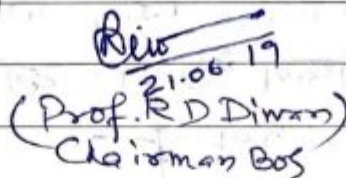 21.06.19
(Prof. R D Diwan)
Chairman BOS